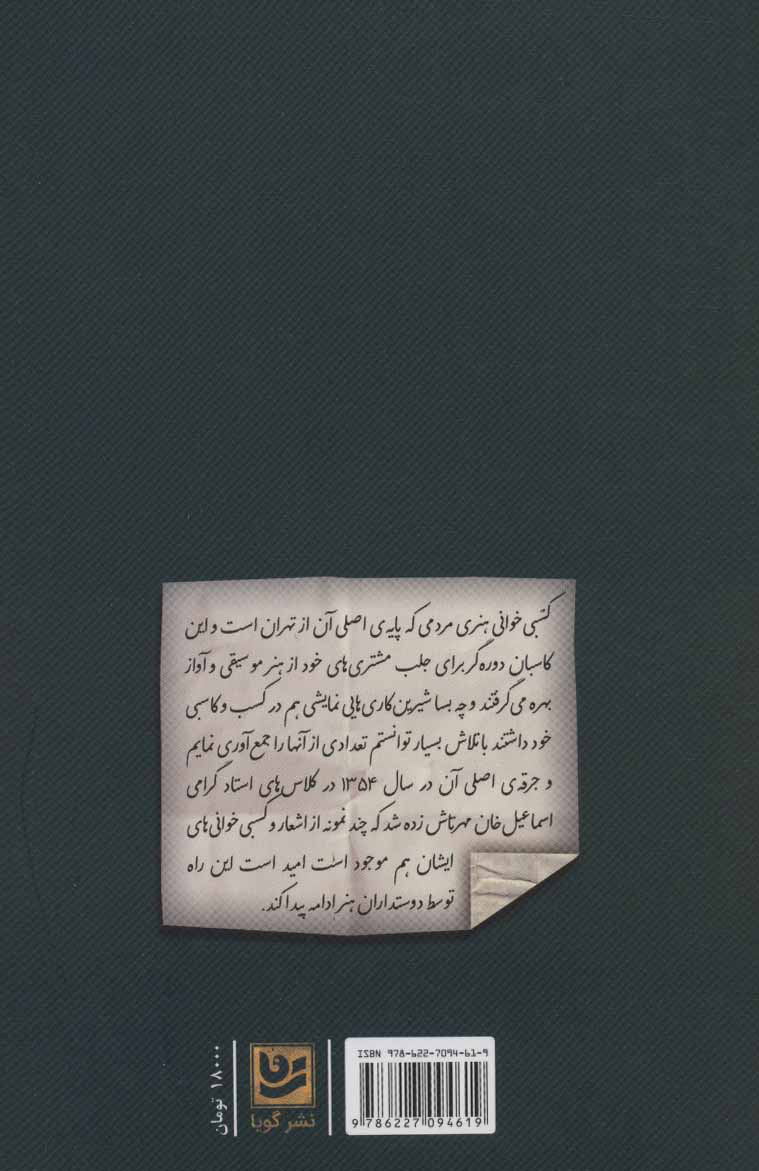 کسبی خوانی هنری مردمی که پایه ی اصلی آن از تهران است و این
کاسبان دوره گر برای جلب مشتری های خود از هنر موسیقی و آواز
بهره می گرفتند و چه بسا شیرین کاری هایی نمایشی هم در کسب و کاسبی
خود داشتند با تلاش بسیار توانستم تعدادی از آنها را جمع آوری نمایم
و جرقه ی اصلی آن در سال ۱۳۵۴ در کلاس های استاد گرامی
اسماعیل خان مهرتاش زده شد که چند نمونه از اشعار و کسبی خوانی های
ایشان هم موجود است امید است این راه
توسط دوستداران هنر ادامه پیدا کند.
ISBN 978-622-7094-61-9
9 786227 094619
نشر گویا
۱۸۰۰۰ تومان